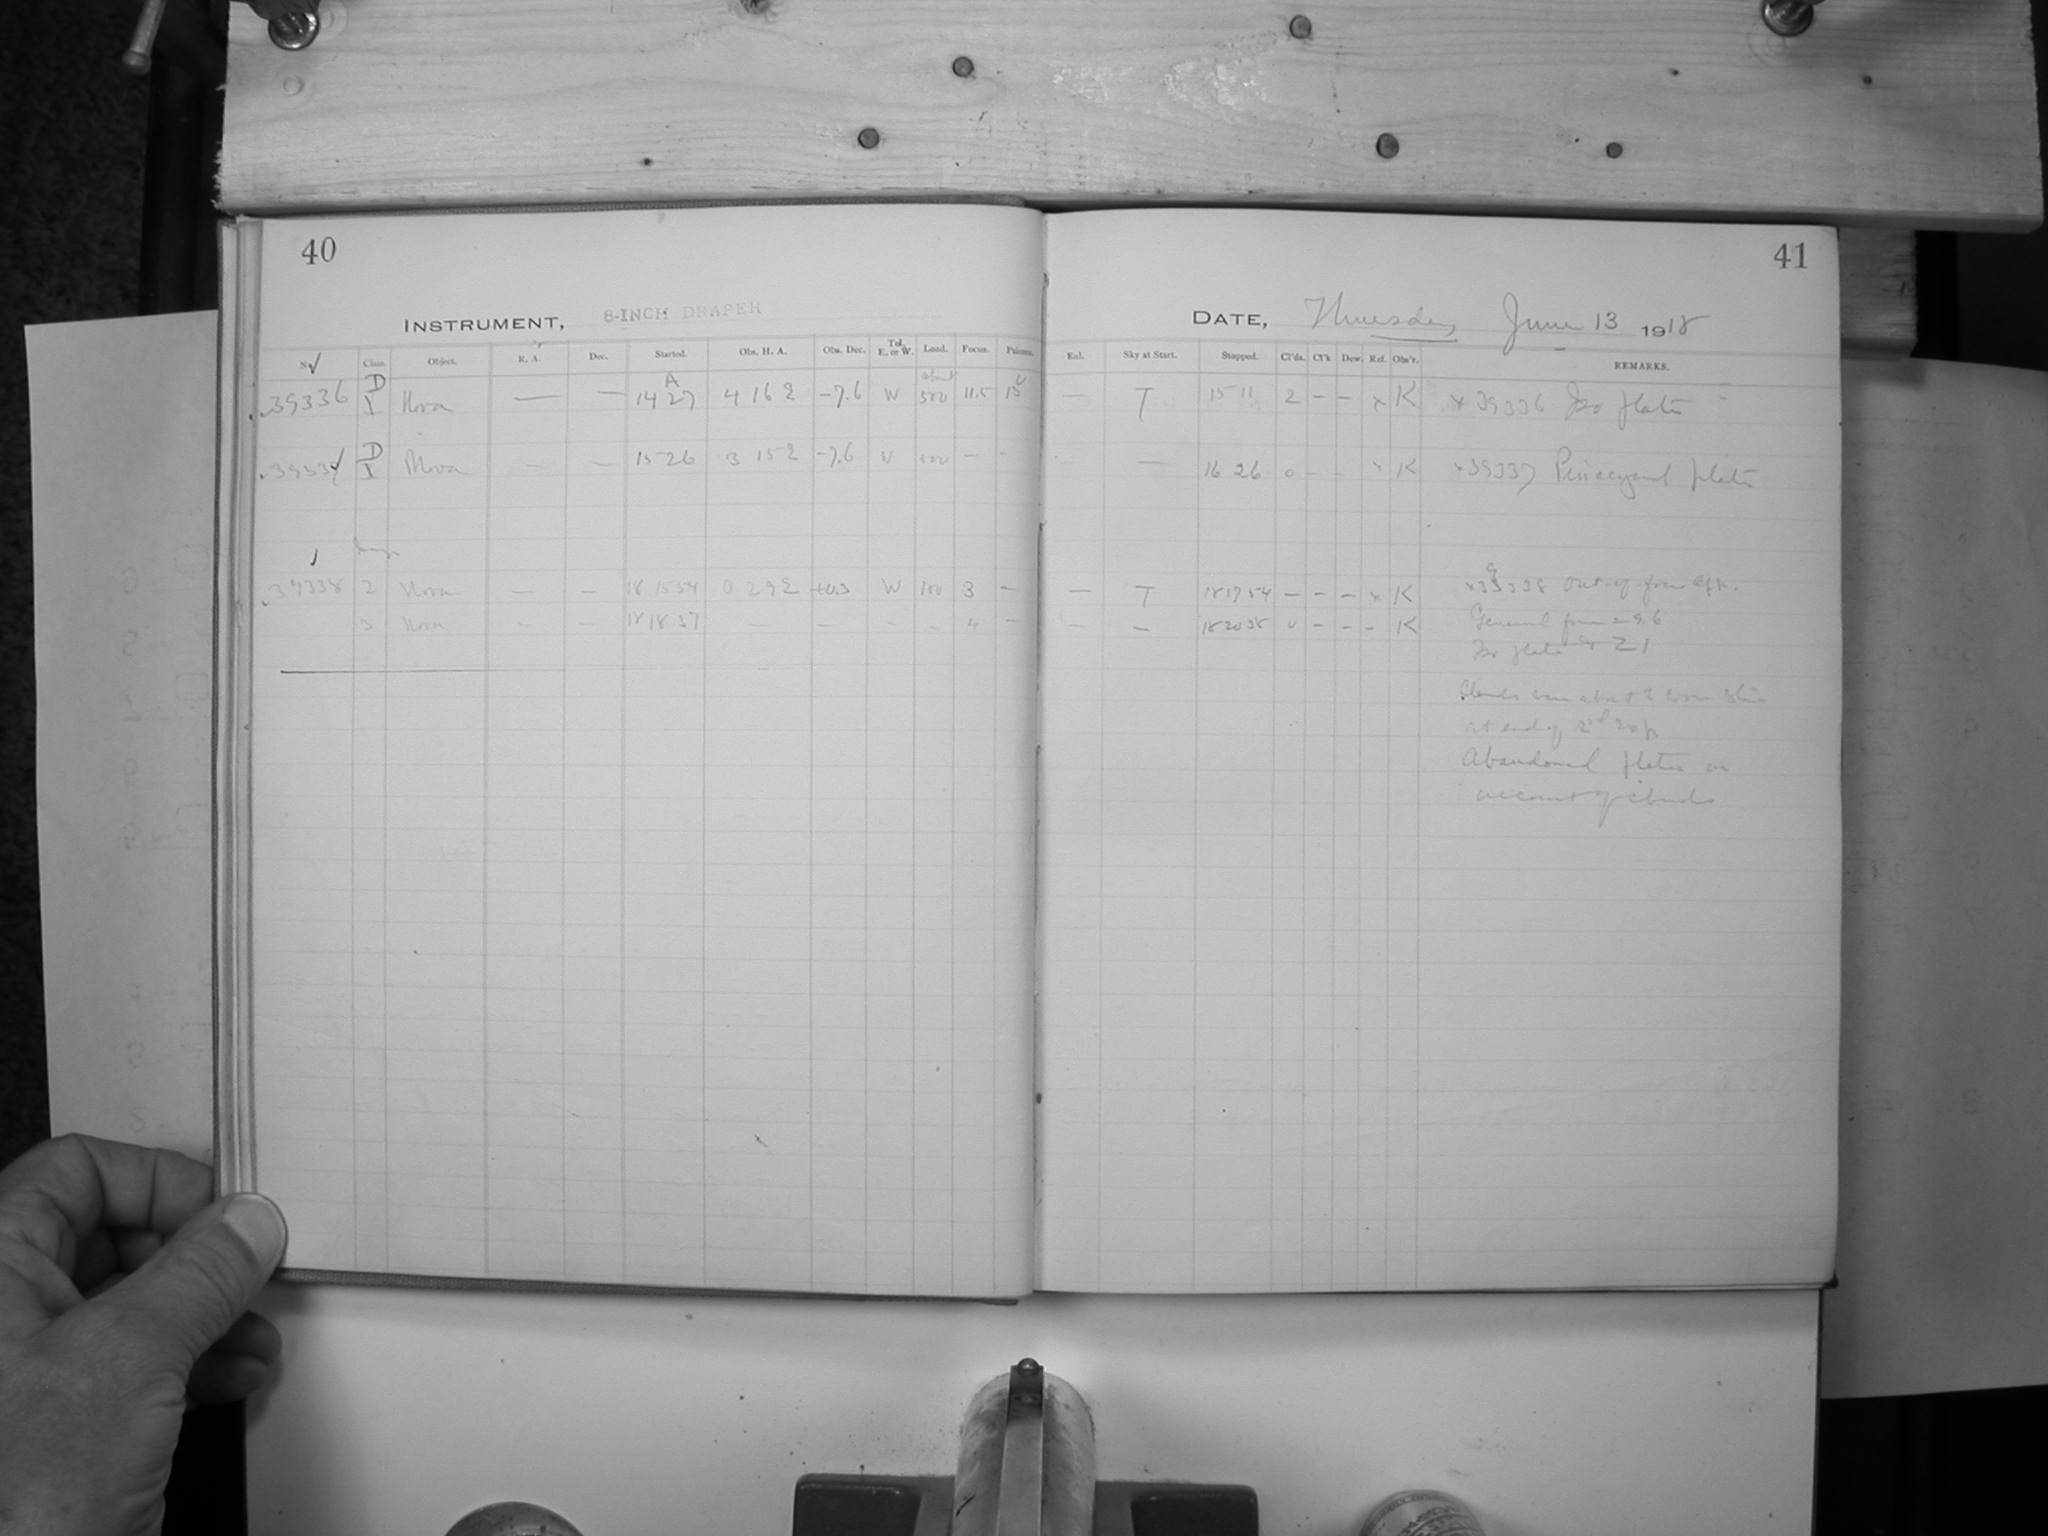 40
INSTRUMENT, 8-INCH DRAPER
No. Class. Object. R. A. Dec. Started. Obs. H. A. Obs. Dec. Tel. E. or W. Load. Focus. Prisms.
39336 D I Nova — — A 14 27 4 16 2 -7.6 W about 500 11.5 15
39337 D I Nova — — 15 26 3 15 2 -7.6 W 500 — -
39338 2 Nova — — 18 15 54 0 29 2 +0.3 W 100 3 —
3 Nova - - 18 18 37 — — - - - 4 —
41
DATE, Thursday June 13 1918
Eal. Sky at Start. Stopped. Cl'ds. Cl'k Dew. Ref. Obs'r. REMARKS.
— T 15 11 2 - - x K x 39336 Iso plate
— 16 26 0 - - x K x39337 Pinacyanol plate
— T 18 17 54 — — — x K x39338 Out-of-focus exp.
- — 18 20 38 0 - - - K General focus 9.6
Iso plate 21
Clouds
at end of 2nd exp
Abandoned plates on
account of clouds